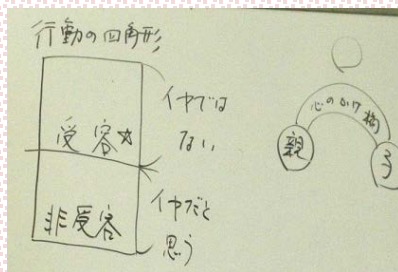 行動の四角形
受容☆
イヤでは
ない
非受容
イヤだと
思う
心のかけ橋
親
子